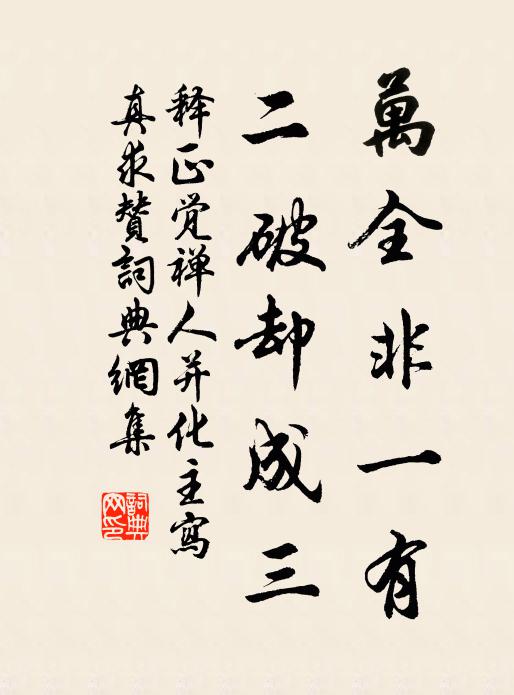 萬全非一有
二破却成三
释正觉禅人并化主寫
真求赞詞典網集
詞典
网印